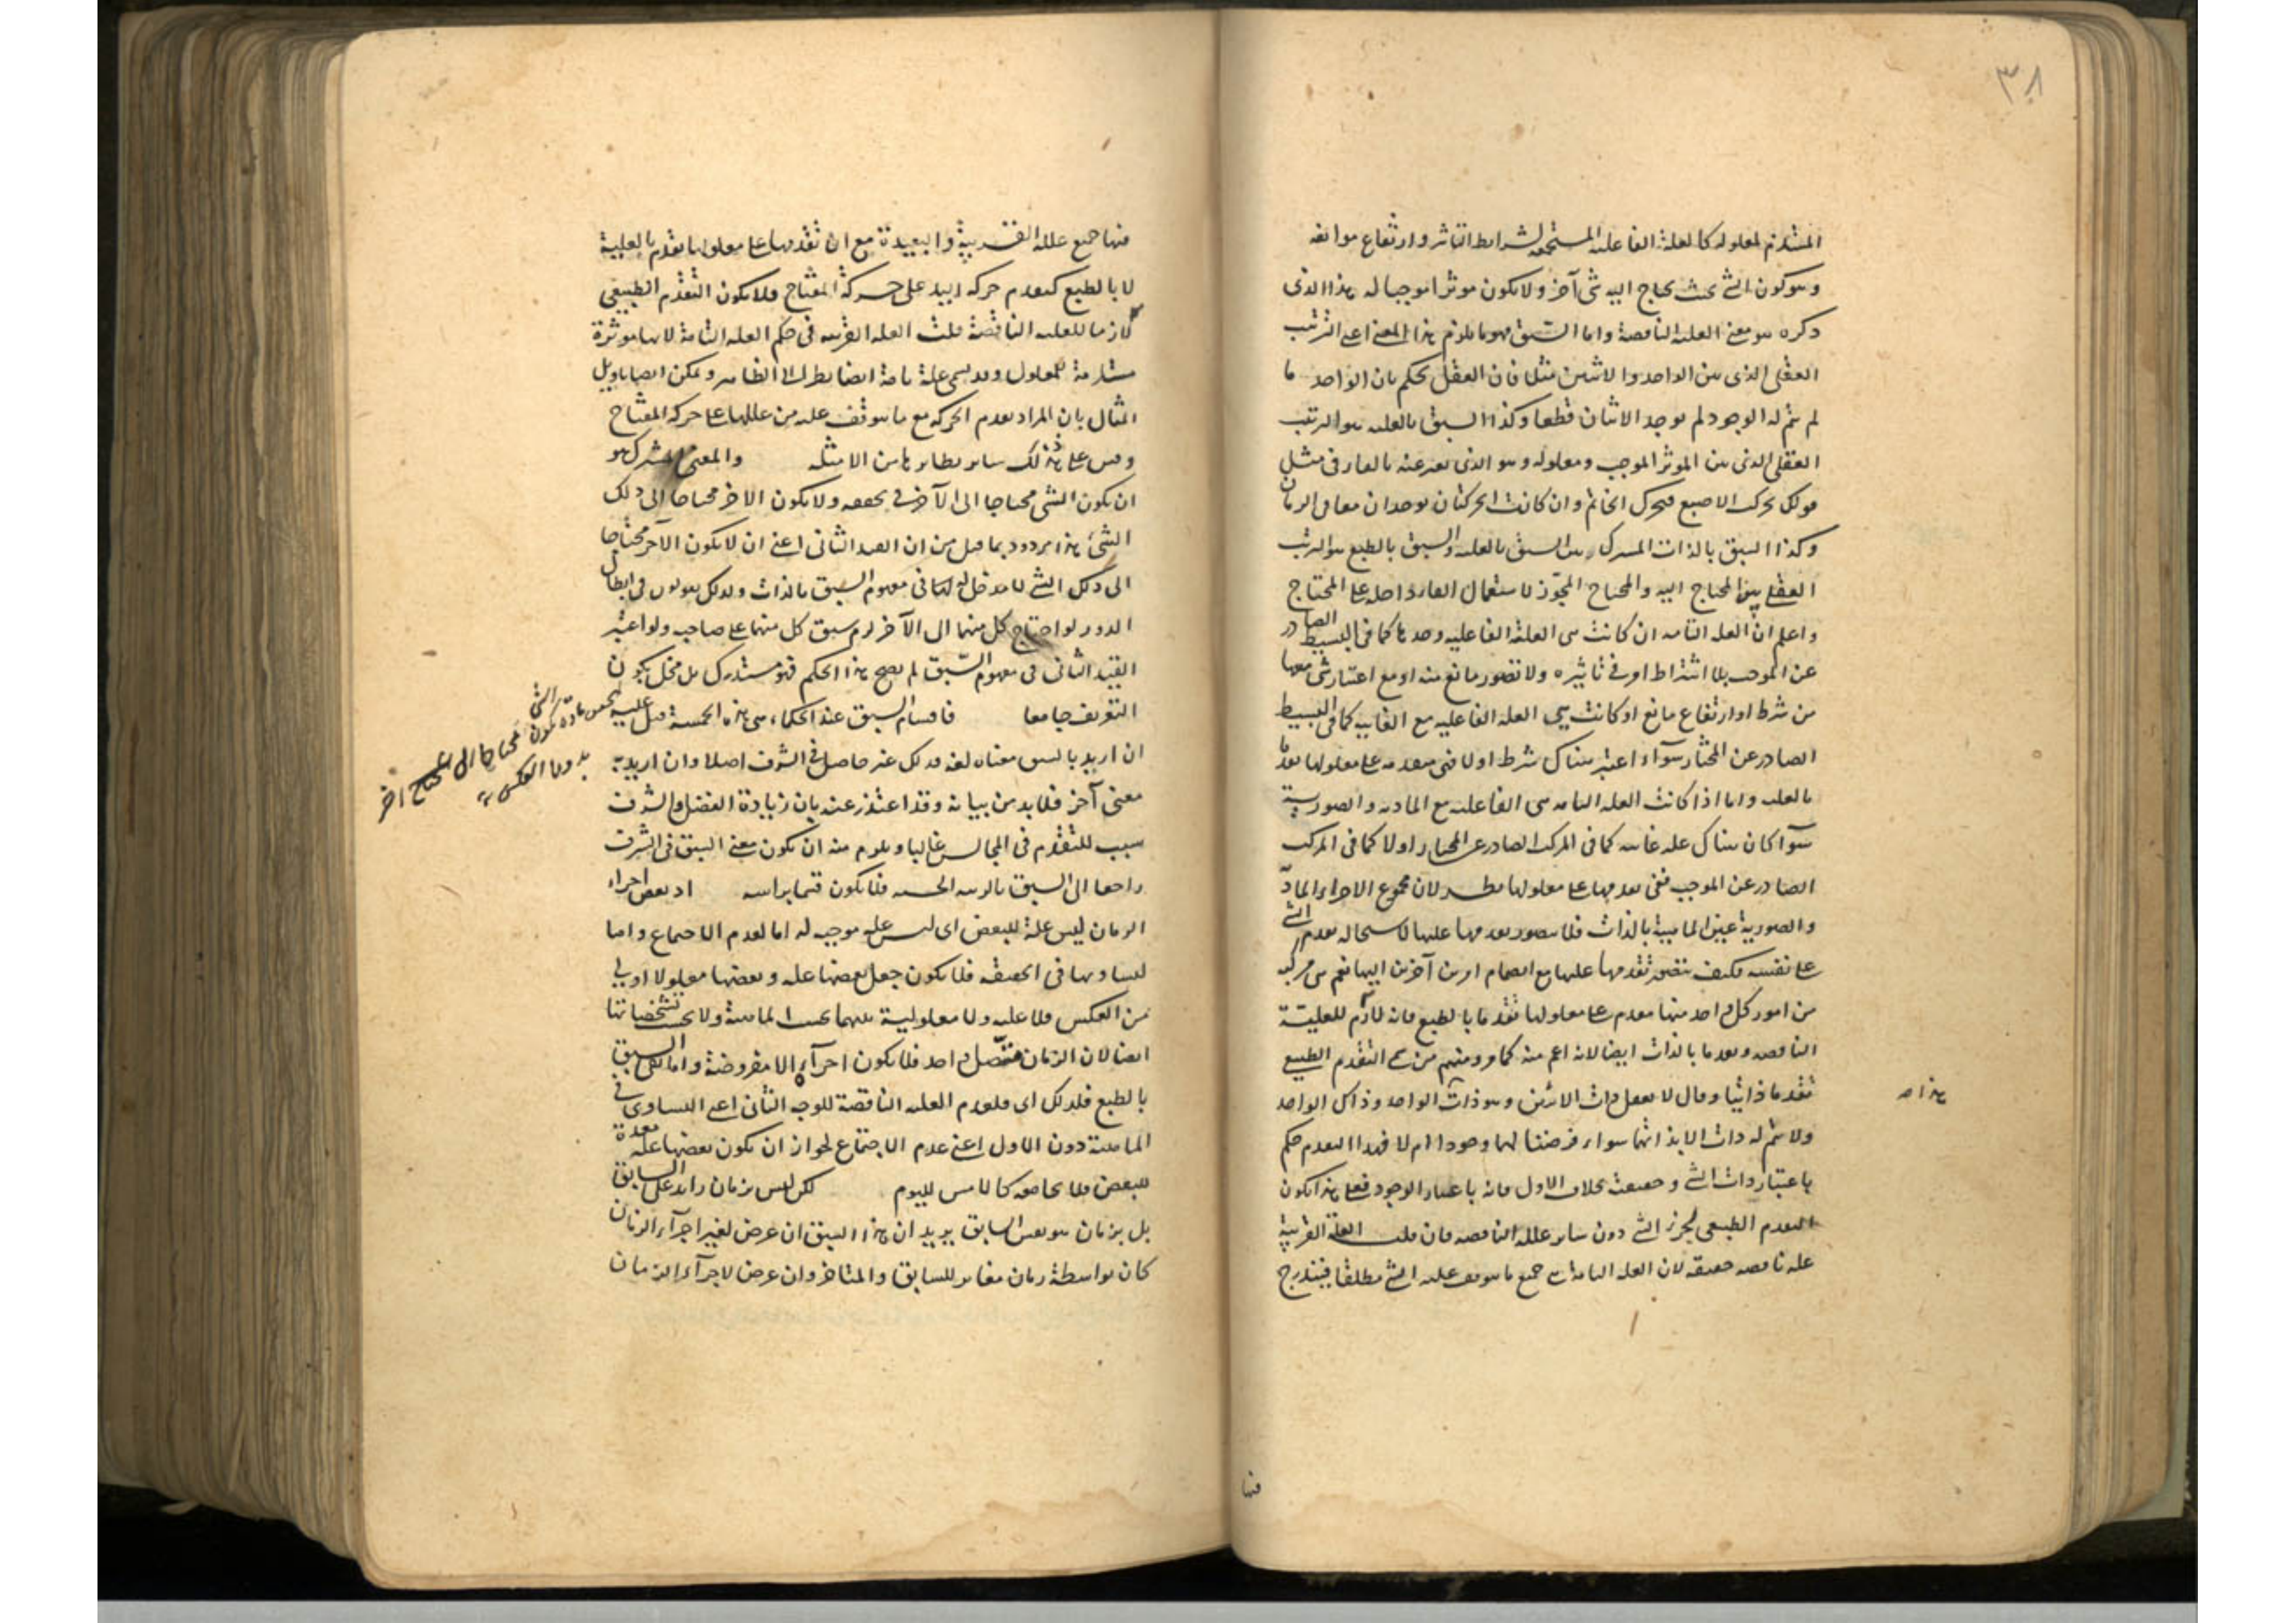 ٣٨
المستلزم لمعلوله كالعلة الفاعلية المستجمعة لشرائط التأثير وارتفاع موانعه
وهو كون الشئ بحيث يحتاج اليه شئ آخر ولا يكون موثرا موجبا له هذا الذى
ذكره هو معنى العلية الناقصة واما السبق فهو ما يلزم هذا المعنى اعنى الترتب
العقلى الذى بين الواحد والاثنين مثلا فان العقل يحكم بان الواحد ما
لم يتم له الوجود لم يوجد الاثنان قطعا وكذا السبق بالعلية هو الترتب
العقلى الذى بين الموثر الموجب ومعلوله وهو الذى يعبر عنه بالفاء فى مثل
قولك تحرك الاصبع فتحرك الخاتم وان كانت الحركتان توجدان معا فى الزمان
وكذا السبق بالذات المشترك بين السبق بالعلية والسبق بالطبع هو الترتب
العقلى بين المحتاج اليه والمحتاج المجوز لاستعمال الفاء داخلة على المحتاج
واعلم ان العلة التامة ان كانت هى العلة الفاعلية وحدها كما فى البسيط الصادر
عن الموجب بلا اشتراط امر فى تاثيره ولا تصور مانع منه او مع اعتبار شئ معها
من شرط او ارتفاع مانع او كانت هى العلة الفاعلية مع الغايية كما فى البسيط
الصادر عن المختار سوآء اعتبر هناك شرط اولا فهى متقدمة على معلولها تقدما
بالعلية واما اذا كانت العلة التامة هى الفاعلية مع المادية والصورية
سوآ كان هناك علة غائية كما فى المركب الصادر عن المختار اولا كما فى المركب
الصادر عن الموجب ففى تقدمها على معلولها نظر لان مجموع الاجزاء المادية
والصورية عين الماهية بالذات فلا يتصور تقدمها عليها لاستحالة تقدم الشئ
على نفسه فكيف يتصور تقدمها عليها مع انضمام امرين آخرين اليها نعم هى مركبة
من امور كل واحد منها متقدم على معلولها تقدما بالطبع فانه لازم للعلية
الناقصة وتقدما بالذات ايضا لانه اعم منه كما مر ومنهم من سمى التقدم الطبيعى
تقدما ذاتيا وقال لا يعقل ذات الاثنين وهو ذات الواحد وذاك الواحد
هذا صـ
ولا يتم له ذات الا بذاتهما سواء فرضنا لهما وجودا ام لا فهذا التقدم حكم
باعتبار ذات الشئ وحقيقته بخلاف الاول فانه باعتبار الوجود فعلى هذا يكون
التقدم الطبيعى لجزء الشئ دون سائر علله الناقصة فان قلت العلة القريبة
علة ناقصة حقيقة لان العلة التامة هى جميع ما يتوقف عليه الشئ مطلقا فيندرج
فيها
فيها جميع علله القريبة والبعيدة مع ان تقدمها على معلولها تقدم بالعلية
لا بالطبع كتقدم حركة اليد على حركة المفتاح فلا يكون التقدم الطبيعى
لازما للعلية الناقصة قلت العلة القريبة فى حكم العلة التامة لانها موثرة
مستلزمة للمعلول وقد يسمى علة تامة ايضا نظرا الى الظاهر ويمكن ايضا تاويل
المثال بان المراد تقدم الحركة مع ما يتوقف عليه من عللها على حركة المفتاح
وقس على ذلك سائر نظائرها من الامثلة والمعنى المشترك هو
ان يكون الشئ محتاجا الى الآخر فى تحققه ولا يكون الاخر محتاجا الى ذلك
الشئ هذا مردود بما قيل من ان القيد الثانى اعنى ان لا يكون الآخر محتاجا
الى ذلك الشئ لا مدخل له فى مفهوم السبق بالذات ولذلك يقولون فى ابطال
الدور لو احتاج كل منهما الى الآخر لزم سبق كل منهما على صاحبه ولو اعتبر
القيد الثانى فى مفهوم السبق لم يصح هذا الحكم فهو مستدرك بل مخل بكون
التعريف جامعا فاقسام السبق عند الحكماء هى هذه الخمسة قيل عليه
الشئ
محتاجا الى آخر
بدون العكس
ان اريد بالسبق معناه لغة فذلك غير حاصل فى الشرف اصلا وان اريد به
معنى آخر فلا بد من بيانه وقد اعتذر عنه بان زيادة الفضل والشرف
سبب للتقدم فى المجالس غالبا ويلزم منه ان يكون معنى السبق فى الشرف
راجعا الى السبق بالرتبة الحسية فلا يكون قسما براسه اذ بعض اجزاء
الزمان ليس علة للبعض اى ليس علة موجبة له اما لعدم الاجتماع واما
لتساويها فى الحقيقة فلا يكون جعل بعضها علة وبعضها معلولا اولى
من العكس فلا علية ولا معلولية بينهما بحسب الماهية ولا بحسب تشخصاتها
ايضا لان الزمان متصل واحد فلا يكون اجزآؤه الا مفروضة واما نفى السبق
بالطبع فلذلك اى فلعدم العلية الناقصة للوجه الثانى اعنى التساوى فى
الماهية دون الاول اعنى عدم الاجتماع لجواز ان يكون بعضها علة معدة
للبعض فلا يجامعه كالامس لليوم لكن ليس بزمان زائد على السابق
بل بزمان هو نفس السابق يريد ان هذا السبق ان عرض لغير اجزآء الزمان
كان بواسطة زمان مغاير للسابق والمتاخر وان عرض لاجزآء الزمان